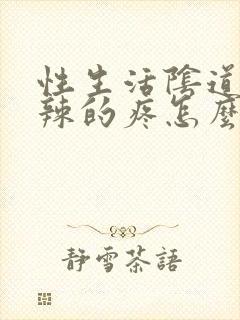 性生活陰道
辣的疼怎麼
靜雪茶語